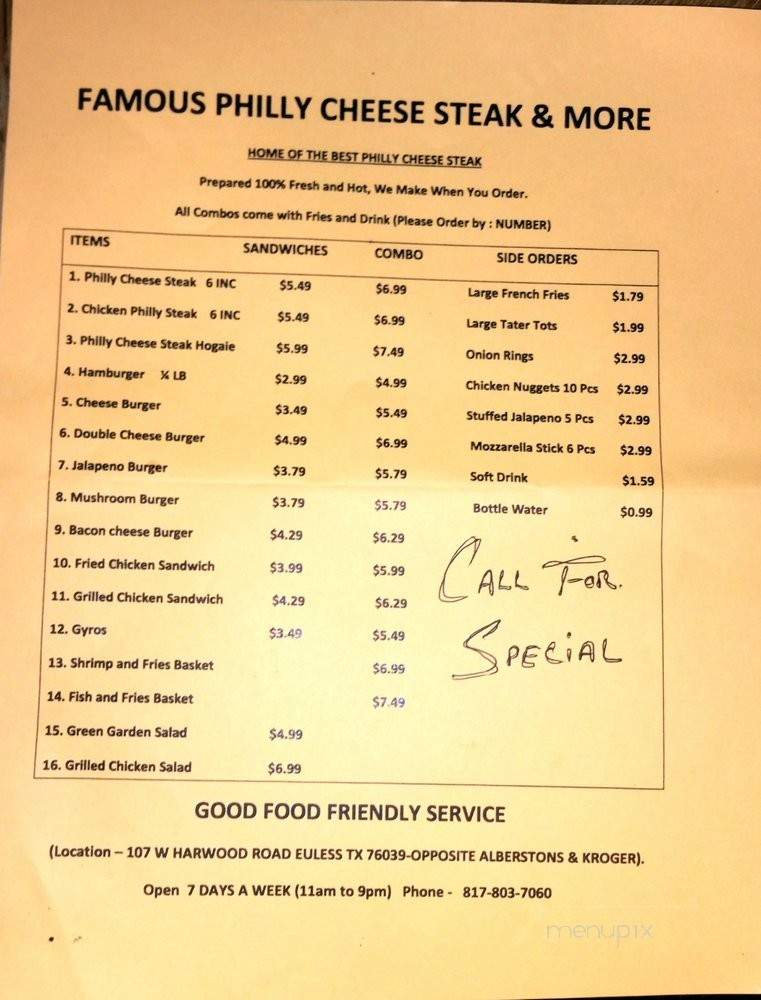 FAMOUS PHILLY CHEESE STEAK & MORE
HOME OF THE BEST PHILLY CHEESE STEAK
Prepared 100% Fresh and Hot, We Make When You Order.
All Combos come with Fries and Drink (Please Order by : NUMBER)
ITEMS SANDWICHES COMBO SIDE ORDERS
1. Philly Cheese Steak 6 INC $5.49 $6.99 Large French Fries $1.79
2. Chicken Philly Steak 6 INC $5.49 $6.99 Large Tater Tots $1.99
3. Philly Cheese Steak Hogaie $5.99 $7.49 Onion Rings $2.99
4. Hamburger ¼ LB $2.99 $4.99 Chicken Nuggets 10 Pcs $2.99
5. Cheese Burger $3.49 $5.49 Stuffed Jalapeno 5 Pcs $2.99
6. Double Cheese Burger $4.99 $6.99 Mozzarella Stick 6 Pcs $2.99
7. Jalapeno Burger $3.79 $5.79 Soft Drink $1.59
8. Mushroom Burger $3.79 $5.79 Bottle Water $0.99
9. Bacon cheese Burger $4.29 $6.29
10. Fried Chicken Sandwich $3.99 $5.99 CALL FOR.
11. Grilled Chicken Sandwich $4.29 $6.29
12. Gyros $3.49 $5.49 SPECIAL
13. Shrimp and Fries Basket $6.99
14. Fish and Fries Basket $7.49
15. Green Garden Salad $4.99
16. Grilled Chicken Salad $6.99
GOOD FOOD FRIENDLY SERVICE
(Location – 107 W HARWOOD ROAD EULESS TX 76039-OPPOSITE ALBERSTONS & KROGER).
Open 7 DAYS A WEEK (11am to 9pm) Phone - 817-803-7060
menupix